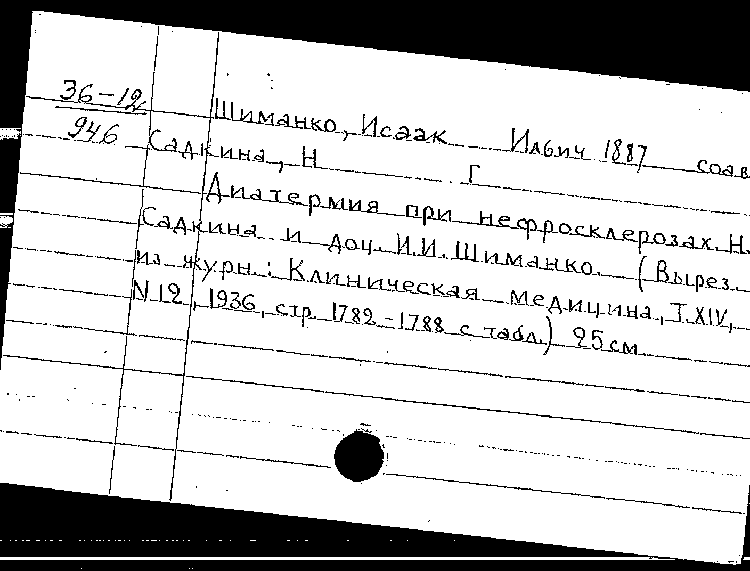 36-12
946
Шиманко, Исаак Ильич 1887 соав
Садкина, Н Г
Диатермия при нефросклерозах. Н.
Садкина и доц. И.И. Шиманко. (Вырез.
из журн.: Клиническая медицина, Т. XIV,
N 12, 1936, стр. 1782-1788 с табл.) 25 см